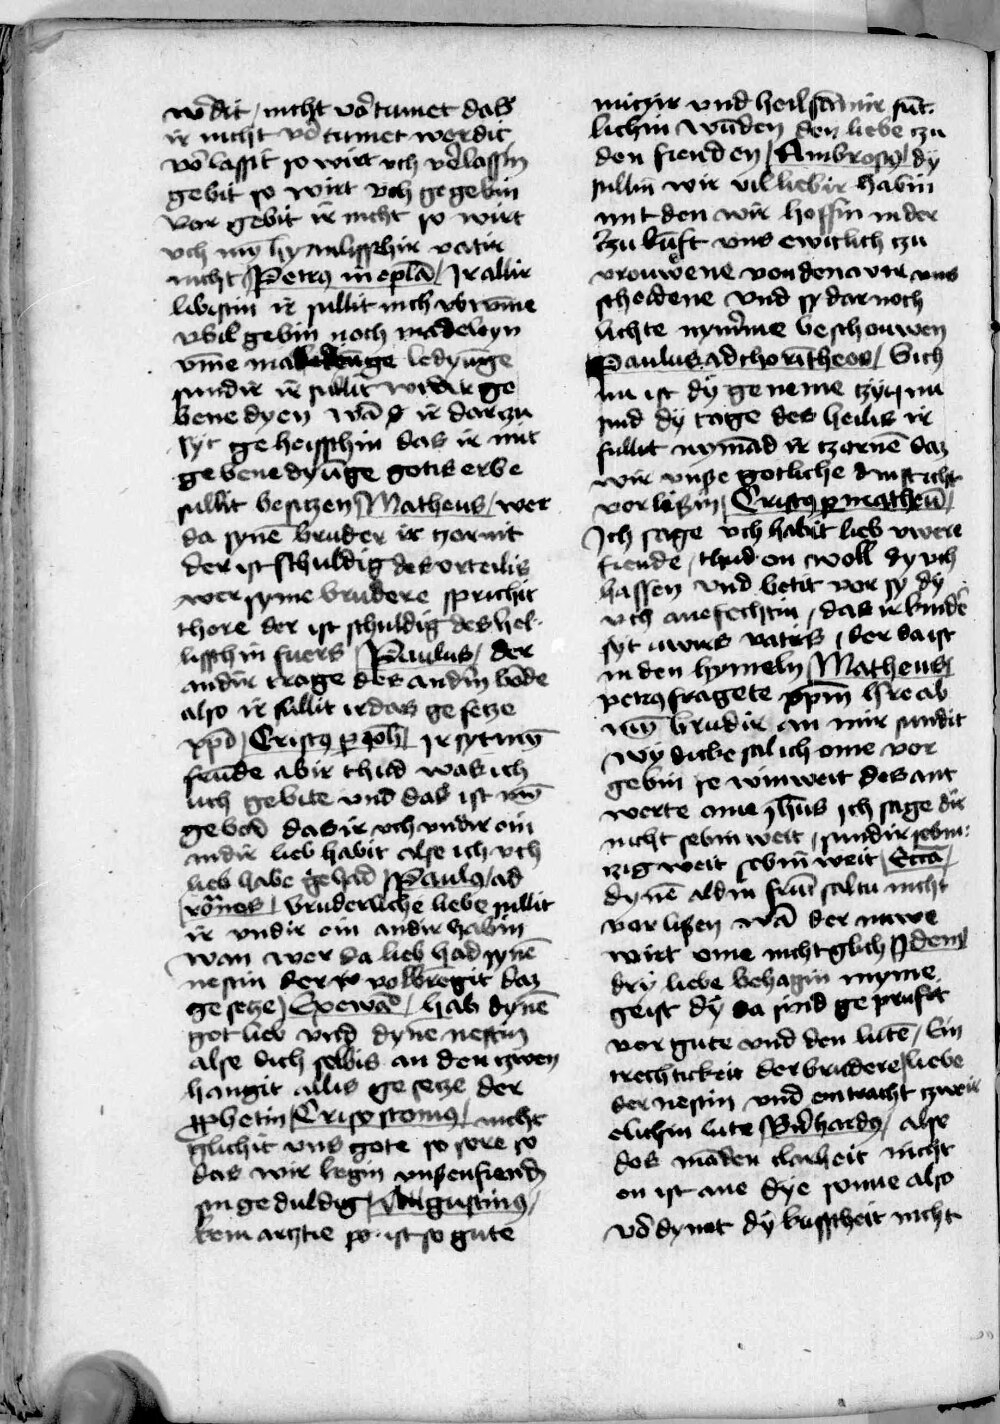 w'dit / nicht vor'tumet das
ir nicht vor'tumet werdit
vorlassit so wirt uch v'lassin
gebit so wirt uch gegebin
vor gebit ir nicht so wirt
uch uwir hymmlisschir vatir
nicht / Petrus in epl'a / Ir allir
libistin ir sullit nich
obil gebin noch
ledyunge
sundir ir sullit wedir ge
bene dyen wa' ir darczu
syt ge heisschin das ir mit
gebenedyu'ge gotis erbe
sullit besiczen / Matheus / wer
da syne' bruder ir czornit
der ist schuldig des orteilis
wer syme brudere sprichit
thore der ist schuldig des hel-
lisschin fuers / Paulus / der
andir trage des andirn borde
also ir sullit irdas ge secze
xpi / Cristus p ioh / Ir syt myn
frunde abir thud was ich
uch gebite und das ist myn
gebod das ir uch undir ein
andir lieb habit alse ich uch
lieb habe gehad / Paulus ad
ro'nos / bruderliche liebe sullit
ir undir ein andir habin
wan wer da lieb had syne'
nestin der volbregit daz
gesecze / hab dyne'
got lieb und dyne nestin
alse dich selbis an den czwen
hangit allis ge secze der
p'phetin / Crisostomus / nicht
glichit uns gote so sere so
das wir legin unsen fienden
sin geduldig / Augustinus /
kein arztie ist so gute
nucze und heilsamir sunt-
lichin wunden den liebe czu
den fienden / Ambrosius / dy
sullin wir vil liebir habin
mit den wir hoffin in der
czukunft uns ewiclich czu
vrouwene von den a wir uns
scheidene und sy dar noch
lichte nymme beschouwen
Paulus ad chorintheos / Sich
nu ist dy geneme czyt nu
sind dy tage des heilis ir
sullit nymand ir czorne' daz
wir unse gotliche
vorlisin / Cristus p matheu' /
Ich sage uch habit lieb uwere
fiende / thud en woll dy uch
hassen und betit vor sy dy
uch anefechtin / das ir kinder
syt uwirs vatirs / der da ist
in den hymeln / Matheus
petrus fragete xpm h're ab
myn brudir an mir sundit
wy dicke sal ich ome vor
gebin se winweit des ant
werte ome ihus ich sage dir
nicht sebinweit / sundir sebin-
zig weit sebin weit / Ecca' /
dyne' aldin frunt saltu nicht
vorlisen wa' der nuwe
wirt ome nicht glich / Idem
dry liebe behagin myme
geist dy da sind ge pruft
vor gute und den lute / Ein
trechtickeit der brudere / liebe
der nestin und eintracht czweir
elichin lute / B'nhardus / alse
des manden clarheit nicht
en ist ane dye sonne also
dy kuscheit nicht